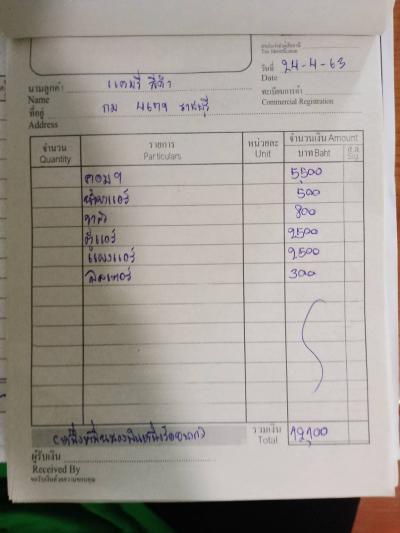 เลขประจำตัวผู้เสียภาษี
Tax Identification
วันที่ 24-4-63
Date
นามลูกค้า แคมรี่ สีดำ
Name
ทะเบียนการค้า
Commercial Registration
ที่อยู่ กม 4679 ราชบุรี
Address
จำนวน รายการ หน่วยละ จำนวนเงิน Amount
Quantity Particulars Unit บาท Baht ส.ต. Stg
คอมฯ 5500
น้ำยาแอร์ 500
วาล์ว 800
ตู้แอร์ 2500
แผงแอร์ 2500
300
(หนึ่งหมื่นสองพันหนึ่งร้อยบาท) รวมเงิน 12,100
Total
ผู้รับเงิน
Received By
ขอรับเงินด้วยความขอบคุณ